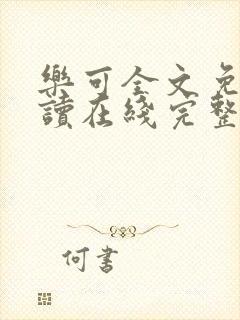 樂可全文免
讀在綫完整
何書